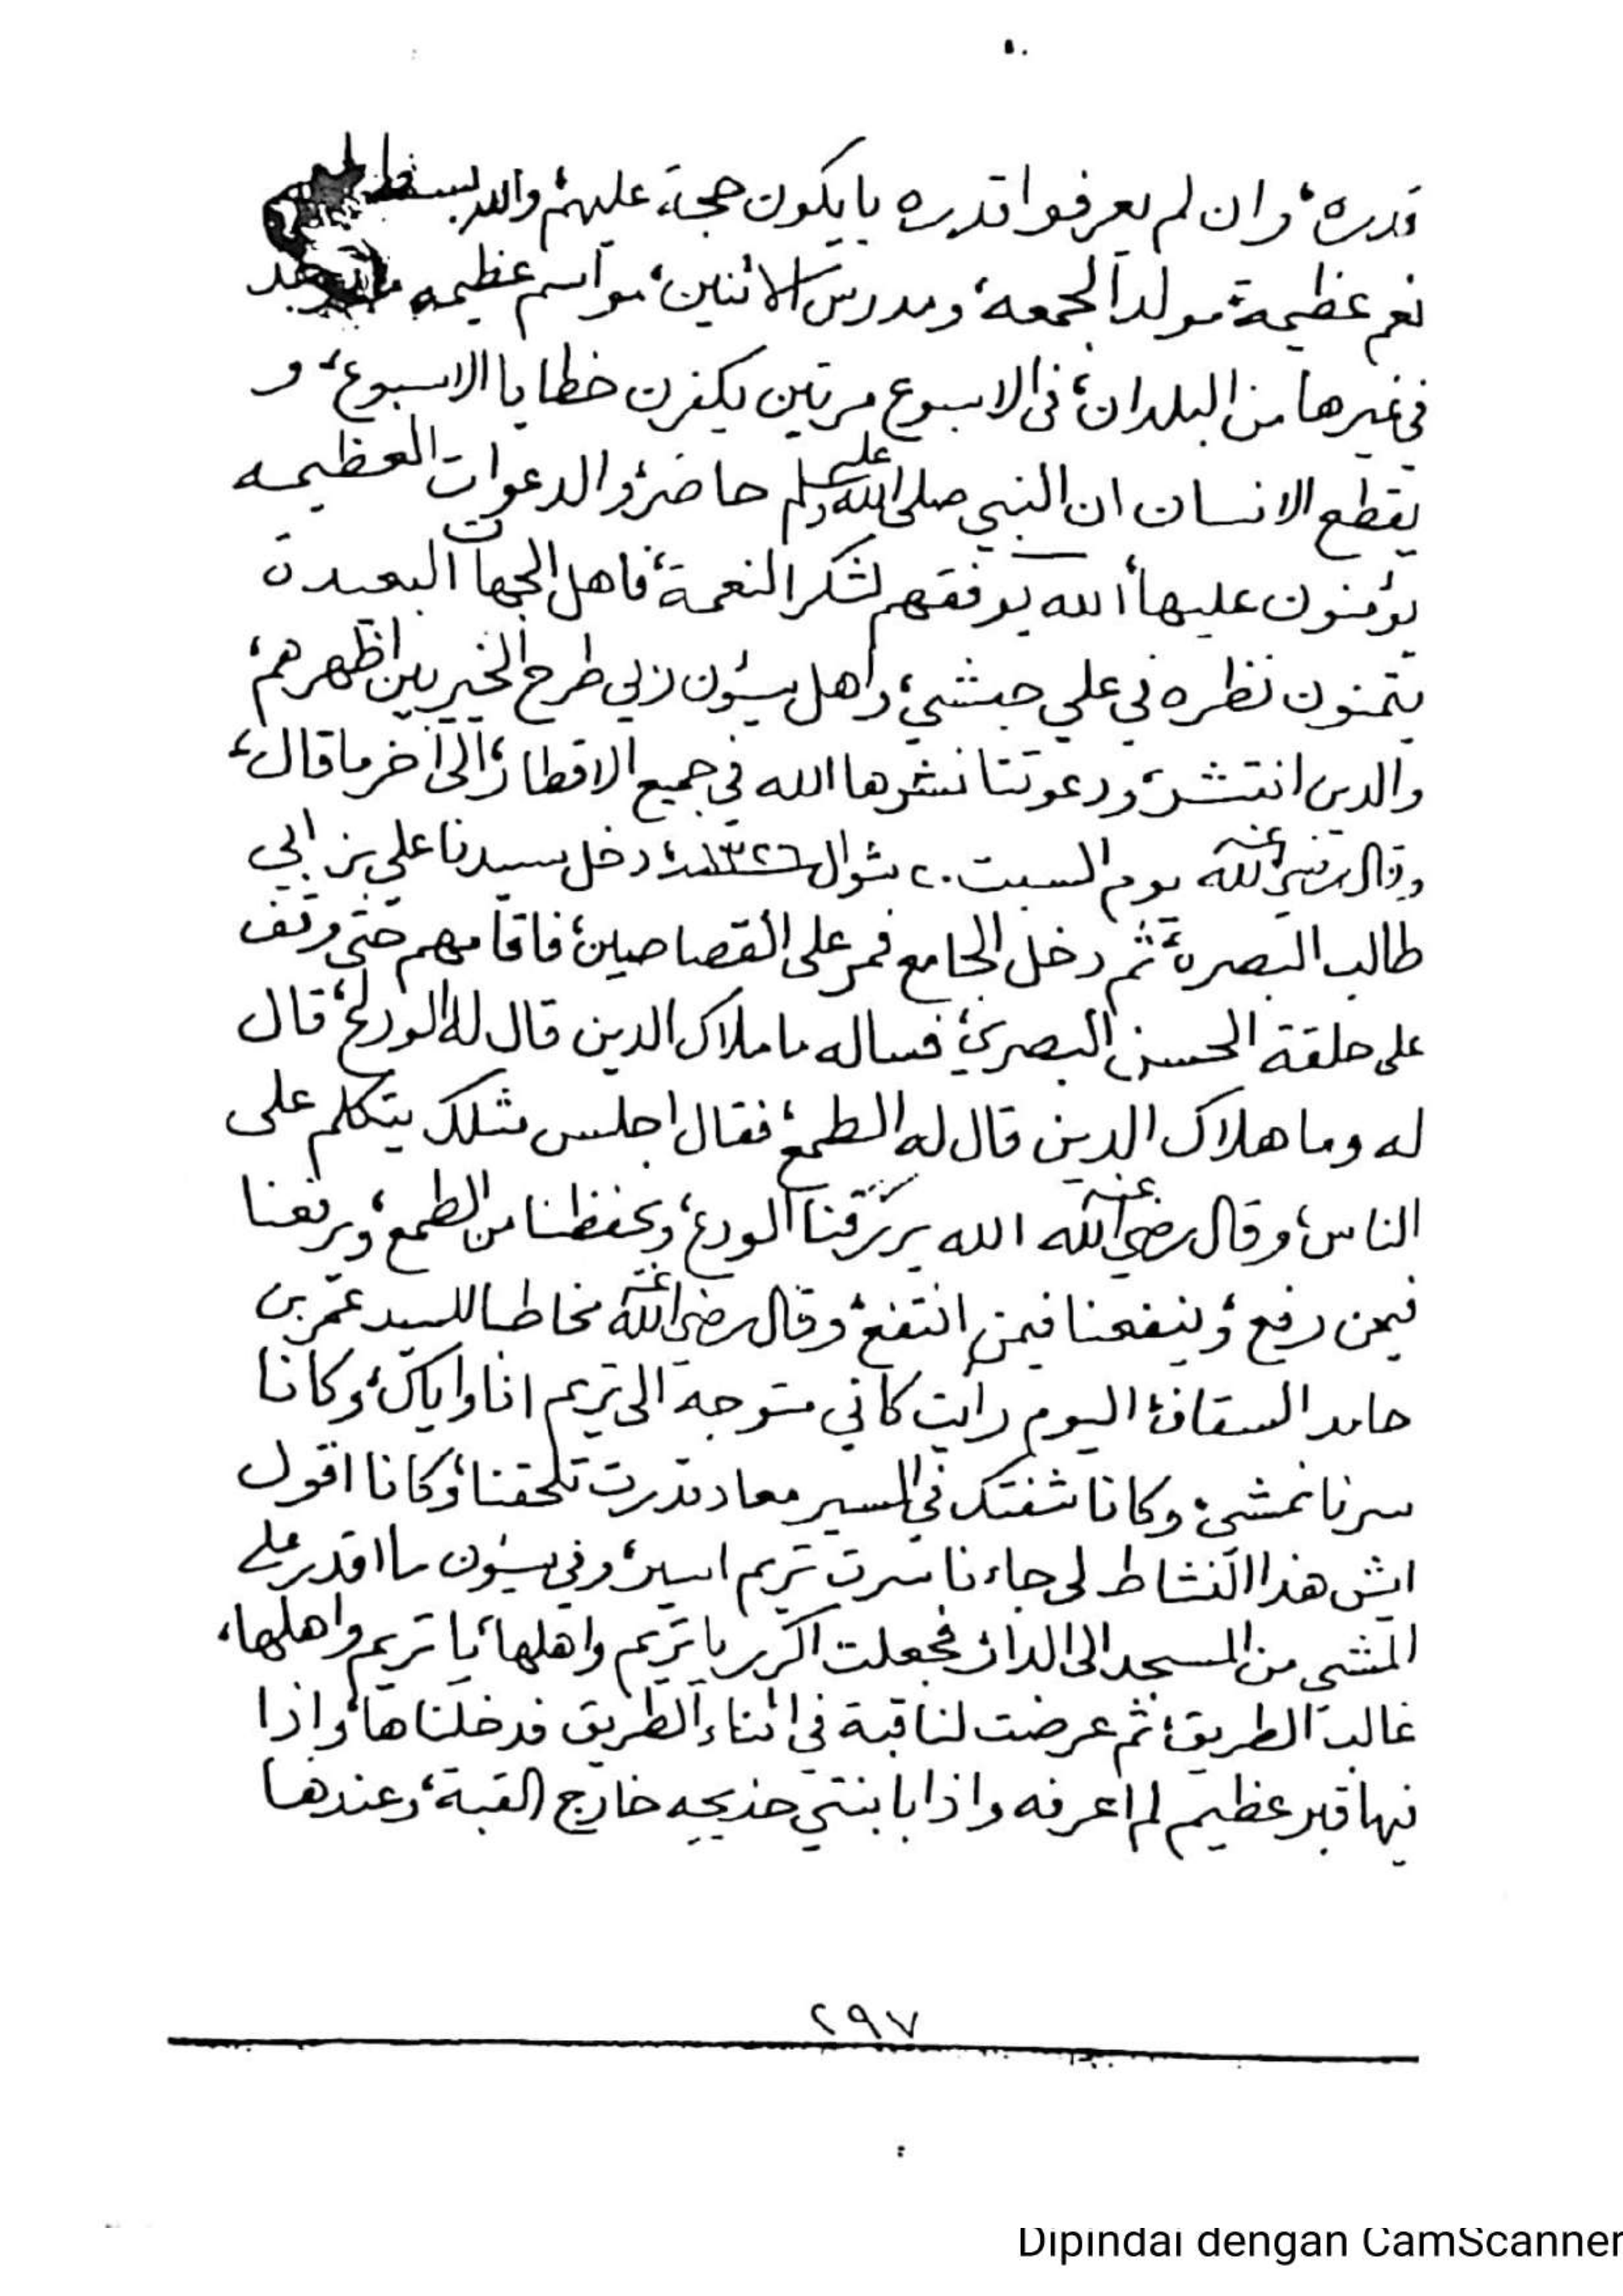 قدره، وان لم يعرفوا قدره بايكون حجة عليهم، والله بسط لهم
نعم عظيمة، مولد الجمعه، ومدرس الاثنين، مواسم عظيمه ما توجد
في غيرها من البلدان، في الاسبوع مرتين يكفرن خطايا الاسبوع، و
يقطع الانسان ان النبي صلى الله عليه وسلم حاضر، والدعوات العظيمه
يؤمنون عليها، الله يوفقهم لشكر النعمة، فاهل الجهات البعيدة
يتمنون نظره في علي حبشي، واهل سيؤن ربي طرح الخير بين اظهرهم،
والدين انتشر، ودعوتنا نشرها الله في جميع الاقطار، الى آخر ما قال،
وقال رضي الله عنه يوم السبت ٢٠ شوال ١٣٢٦، دخل سيدنا علي بن ابي
طالب البصرة، ثم دخل الجامع فمر على القصاصين، فاقامهم حتى وقف
على حلقة الحسن البصري، فساله ما ملاك الدين قال له الورع، قال
له وما هلاك الدين قال له الطمع، فقال اجلس مثلك يتكلم على
الناس، وقال رضي الله عنه الله يرزقنا الورع، ويحفظنا من الطمع، ويرفعنا
فيمن رفع، وينفعنا فيمن انتفع، وقال رضي الله عنه مخاطبا للسيد عمر بن
حامد السقاف، اليوم رأيت كاني متوجه الى تريم انا واياك، وكانا
سرنا نمشي، وكانا شفتك في السير معاد قدرت تلحقنا، وكانا اقول
ايش هذا النشاط لي جاءنا سرت تريم اسير، وفي سيؤن ما اقدر على
المشي من المسجد الى الدار، فجعلت اكرر يا تريم واهلها، يا تريم واهلها،
غالب الطريق، ثم عرضت لنا قبة في اثناء الطريق فدخلناها، واذا
فيها قبر عظيم لم اعرفه واذا بابنتي خديجه خارج القبة، وعندها
٢٩٧
Dipindai dengan CamScanner